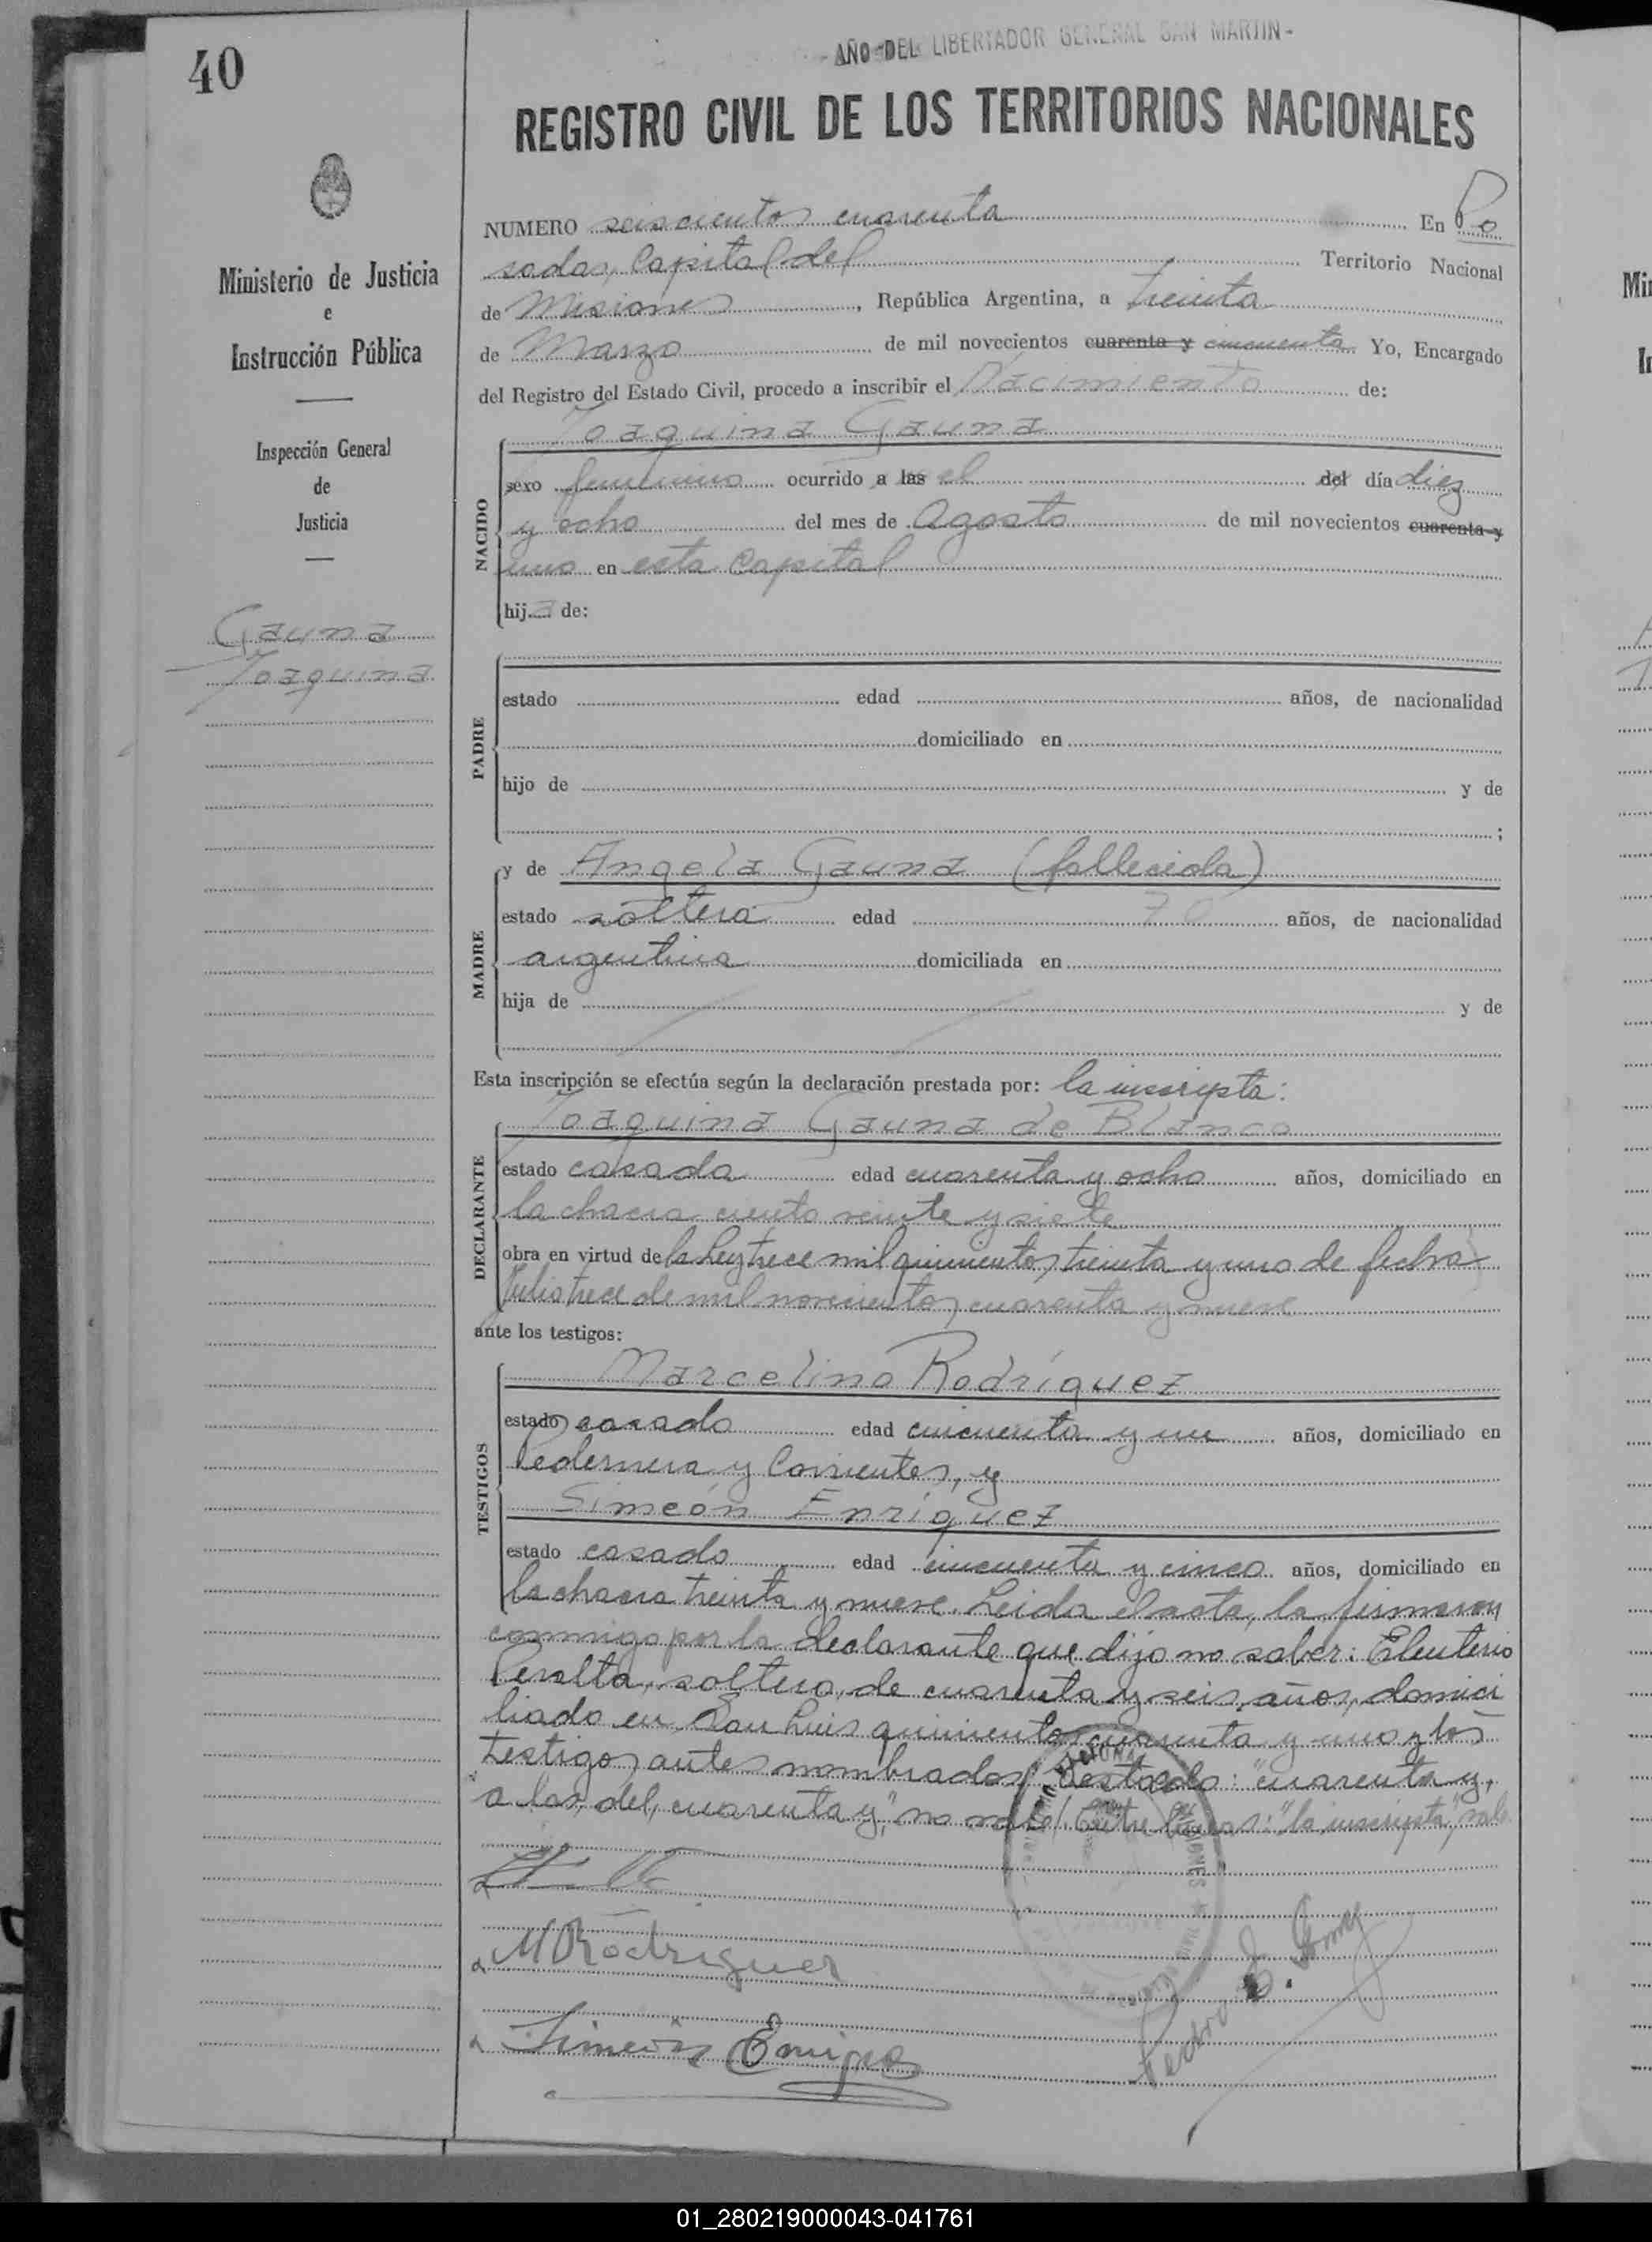 40
- AÑO DEL LIBERTADOR GENERAL SAN MARTIN -
REGISTRO CIVIL DE LOS TERRITORIOS NACIONALES
Ministerio de Justicia
e
Instrucción Pública
Inspección General
de
Justicia
Gauna
Joaquina
NUMERO seiscientos cuarenta En Po
sadas, Capital del Territorio Nacional
de Misiones, República Argentina, a treinta
de Marzo de mil novecientos cuarenta y cincuenta Yo, Encargado
del Registro del Estado Civil, procedo a inscribir el Nacimiento de:
NACIDO
Joaquina Gauna
sexo femenino ocurrido a las el del día diez
y ocho del mes de Agosto de mil novecientos cuarenta y
uno en esta Capital
hija de:
PADRE
estado edad años, de nacionalidad
domiciliado en
hijo de y de
;
MADRE
y de Angela Gauna (fallecida)
estado soltera edad años, de nacionalidad
argentina domiciliada en
hija de y de
Esta inscripción se efectúa según la declaración prestada por: la inscripta:
DECLARANTE
Joaquina Gauna de Blanco
estado casada edad cuarenta y ocho años, domiciliado en
la chacra ciento veinte y siete
obra en virtud de la Ley trece mil quinientos treinta y uno de fecha
Julio trece de mil novecientos cuarenta y nueve
ante los testigos:
TESTIGOS
Marcelino Rodríguez
estado casado edad cincuenta y un años, domiciliado en
Pedernera y Corrientes, y
Simeón Enríquez
estado casado edad cincuenta y cinco años, domiciliado en
la chacra treinta y nueve. Leida el acta, la firmaron
conmigo por la declarante que dijo no saber: Eleuterio
Peralta, soltero, de cuarenta y seis años, domici
liado en San Luis quinientos cuarenta y uno y los
testigos antes nombrados. Testado: "cuarenta y,
a las, del, cuarenta y," no vale. Entre lineas: "la inscripta", vale
M Rodriguez
Simeón
Pedro
01_280219000043-041761